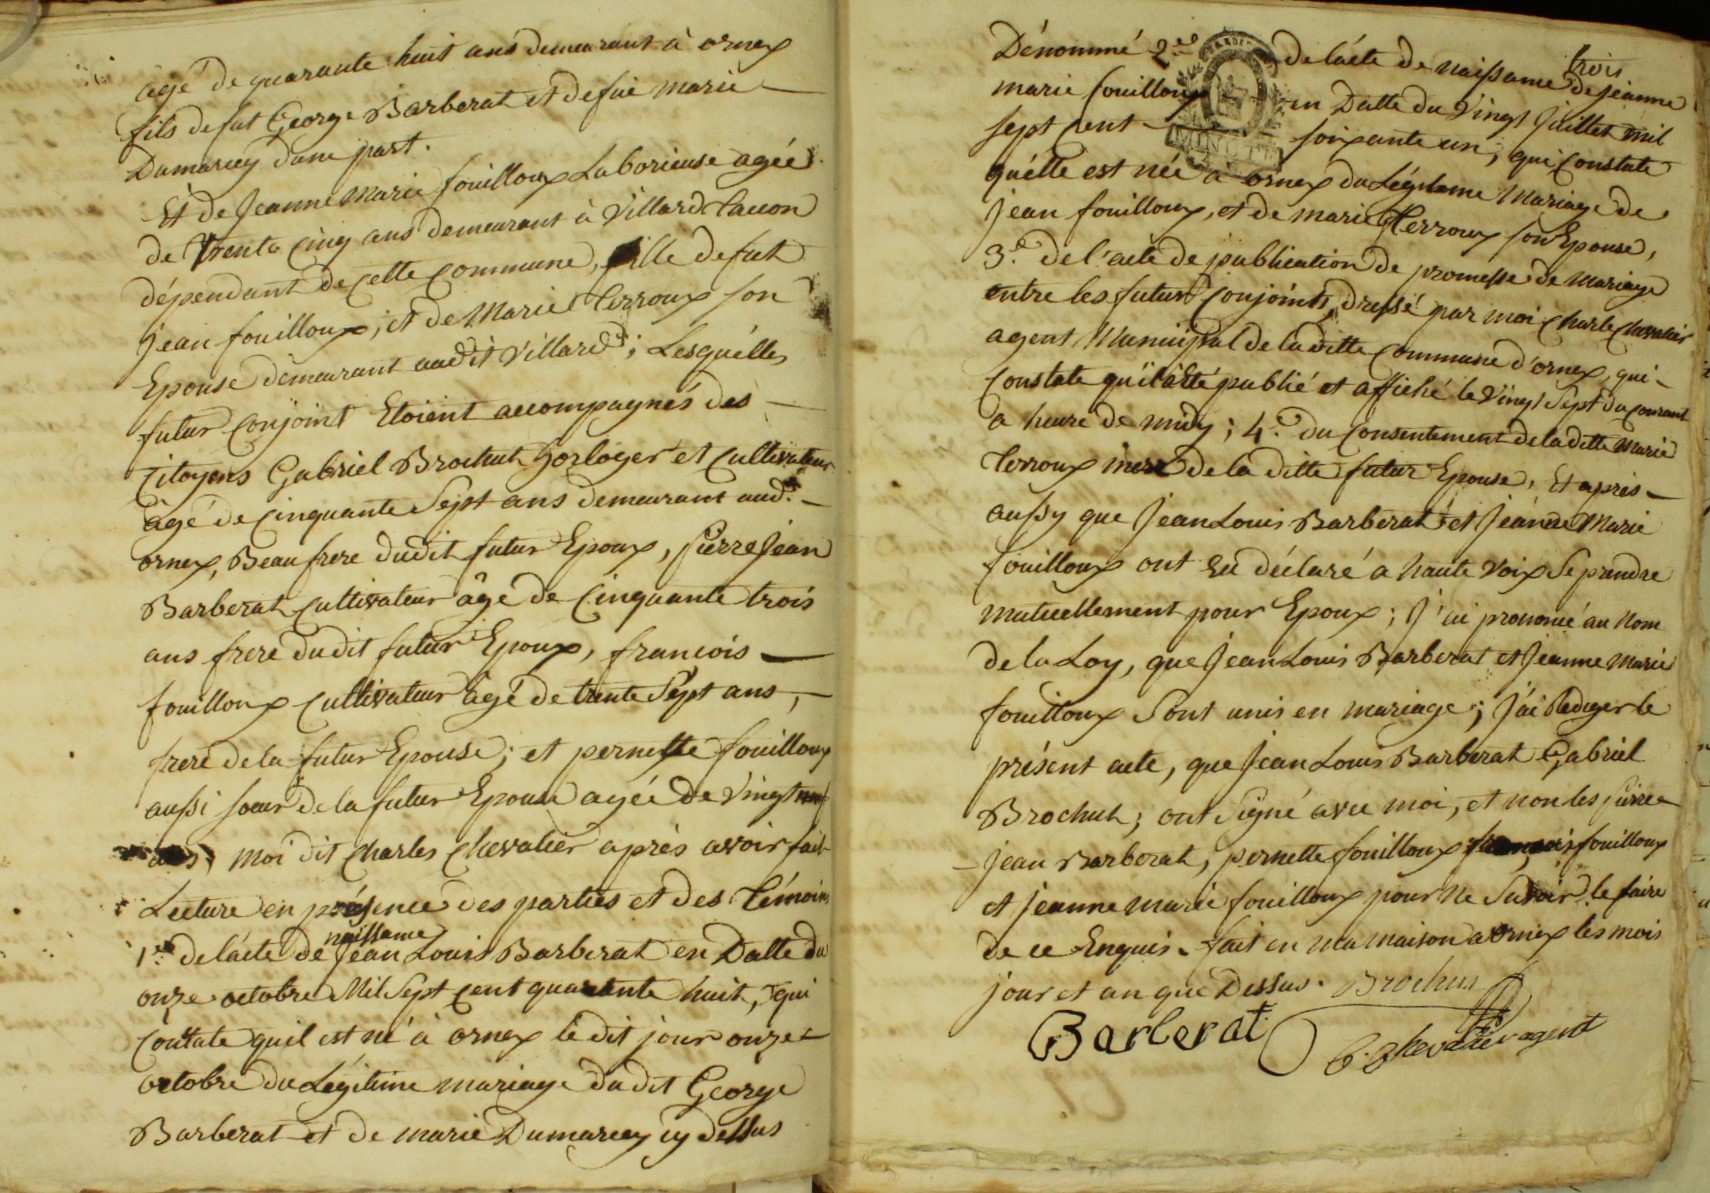 agé de quarante huit ans demeurant à ornex
fils de fut George Barberat et de fue marie
Dumarcey dune part.
Et de Jeanne Marie fouilloux Laborieuse agée
de Trente Cinq ans demeurant à Villard Tacon
dépendant de cette Commune, fille de fut
jean fouilloux, et de Marie Terroux son
Epouse demeurant audit Villard; Lesquélles
futur Conjoint Etoient accompagnés des
Citoyens Gabriel Brochut horloger et Cultivateur
agé de Cinquante Sept ans demeurant aud.
ornex, Beau frere dudit futur Epoux, pierre Jean
Barberat Cultivateur âgé de Cinquante trois
ans frere dudit futur Epoux, francois
fouilloux Cultivateur âgé de trente Sept ans,
frere de la futur Epouse; et pernette fouilloux
aussi soeur de la futur Epouse agée de Vingt neuf
ans, moi dit Charles Chevalier aprés avoir fait
Lecture en présence des parties et des Témoins
naissance
1.er de l'acte de Jean Louis Barberat en Datte du
onze octobre Mil Sept Cent quarante huit, qui
Contate quil est né à ornex le dit jour onze
octobre du Légitime mariage du dit George
Barberat et de marie Dumarcey cy dessus
Dénommé 2.eme de lácte de naissance de jeanne
trois
marie fouilloux en Datte du Vingt Juillet mil
sept Cent soixante un, qui Constate
quélle est née a ornex du Légitame Mariage de
Jean fouilloux, et de marie Terroux son Epouse,
3.e de l'acte de publication de promesse de Mariage
entre les futurs Conjoints, dressé par moi Charle Chevalier
agent Municipal de la ditte Commune d'ornex, qui
Constate quil a été publié et affiché le Vingt Sept du Courant
a heure de midy; 4.e du Consentement de la ditte Marie
Terroux mere de la ditte futur Epouse, Et aprés
aussy que Jean Louis Barberat et Jeanne Marie
fouilloux ont eu déclaré a haute Voix Se prendre
mutuellement pour Epoux; J'ai prononcé au Nom
de la Loy, que Jean Louis Barberat et Jeanne Marie
fouilloux Sont unis en mariage; J'ai Rediger le
présent acte, que Jean Louis Barberat Gabriel
Brochut; ont Signé avec moi, et non les pierre
Jean Barberat, pernette fouilloux francois fouilloux
et jeanne marie fouilloux pour Ne Savoir le faire
de ce Enquis. fait en ma maison a Ornex les mois
jour et an que Dessus. Brochut
Barberat
C. Chevalier agent